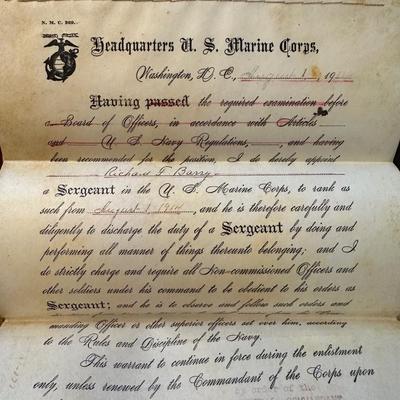 N. M. C. 260.
Headquarters U. S. Marine Corps,
Washington, D. C., August 1, 19
Having passed the required examination before
a Board of Officers, in accordance with Articles
and U. S. Navy Regulations, , and having
been recommended for the position, I do hereby appoint
Richard T Barry
a Sergeant in the U. S. Marine Corps, to rank as
such from August 1, 1914, and he is therefore carefully and
diligently to discharge the duty of a Sergeant by doing and
performing all manner of things thereunto belonging; and I
do strictly charge and require all Non-commissioned Officers and
other soldiers under his command to be obedient to his orders as
Sergeant; and he is to observe and follow such orders and
manding Officer or other superior officers set over him, according
to the Rules and Discipline of the Navy.
This warrant to continue in force during the enlistment
only, unless renewed by the Commandant of the Corps upon
order of the